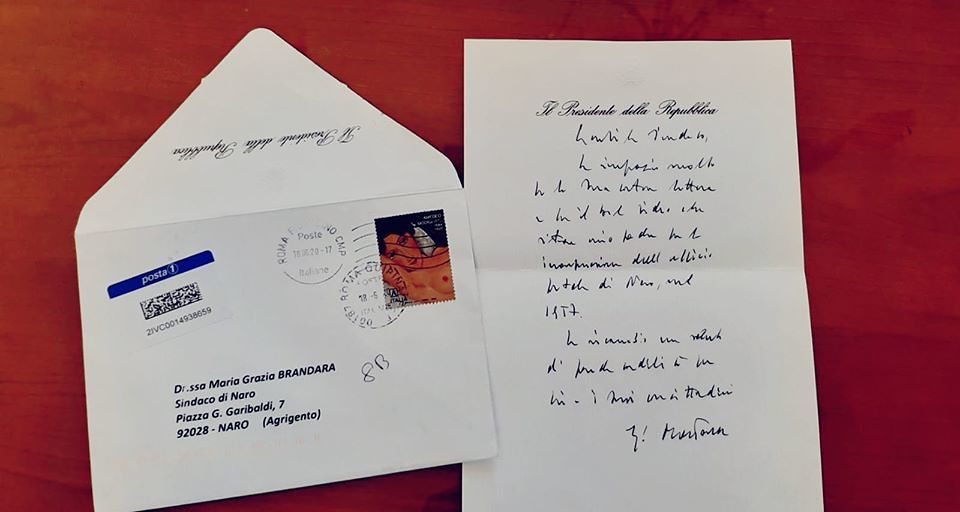 Il Presidente della Repubblica
posta1
2IVC0014938659
Poste
18.06.20-17
Italiane
AMEDEO
ITALIA
8B
Dr.ssa Maria Grazia BRANDARA
Sindaco di Naro
Piazza G. Garibaldi, 7
92028 - NARO (Agrigento)
Il Presidente della Repubblica
Gentile Sindaco,
La ringrazio molto
per la Sua cortese lettera
e per il bel video che
ritrae mio padre per l'
inaugurazione dell'ufficio
postale di Naro, nel
1957.
Le ricambio un saluto
di grande cordialità per
Lei e i Suoi concittadini